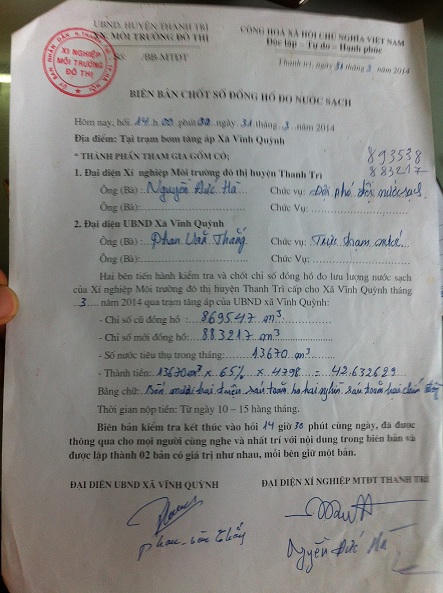 UBND. HUYỆN THANH TRÌ
XN. MÔI TRƯỜNG ĐÔ THỊ
Số: /BB-MTĐT
CỘNG HOÀ XÃ HỘI CHỦ NGHĨA VIỆT NAM
Độc lập – Tự do – Hạnh phúc
Thanh trì, ngày 31 tháng 3 năm 2014
XÍ NGHIỆP
MÔI TRƯỜNG
ĐÔ THỊ
BIÊN BẢN CHỐT SỐ ĐỒNG HỒ ĐO NƯỚC SẠCH
Hôm nay, hồi 14 h 00 phút 00 ngày 31 tháng 3 năm 2014
Địa điểm: Tại trạm bơm tăng áp Xã Vĩnh Quỳnh
893538
883217
* THÀNH PHẦN THAM GIA GỒM CÓ:
1. Đại diện Xí nghiệp Môi trường đô thị huyện Thanh Trì
Ông (Bà): Nguyễn Đức Hà Chức vụ: Đội phó đội nước sạch
Ông (Bà): Chức Vụ:
2. Đại diện UBND Xã Vĩnh Quỳnh
Ông (Bà): Phan Văn Thắng Chức vụ: Trực trạm
Ông (Bà): Chức Vụ:
Hai bên tiến hành kiểm tra và chốt chỉ số đồng hồ đo lưu lượng nước sạch
của Xí nghiệp Môi trường đô thị huyện Thanh Trì cấp cho Xã Vĩnh Quỳnh tháng
3 năm 2014 qua trạm tăng áp của UBND xã Vĩnh Quỳnh:
- Chỉ số cũ đồng hồ: 869547 m³
- Chỉ số mới đồng hồ: 883217 m³
- Số nước tiêu thụ trong tháng: 13670 m³
- Thành tiền: 13670 m³ x 65% x 4798 = 42.632629
Bằng chữ: Bốn mươi hai triệu sáu trăm ba hai nghìn sáu trăm hai chín đồng
Thời gian nộp tiền: Từ ngày 10 – 15 hàng tháng.
Biên bản kiểm tra kết thúc vào hồi 14 giờ 30 phút cùng ngày, đã được
thông qua cho mọi người cùng nghe và nhất trí với nội dung trong biên bản và
được lập thành 02 bản có giá trị như nhau, mỗi bên giữ một bản.
ĐẠI DIỆN UBND XÃ VĨNH QUỲNH
ĐẠI DIỆN XÍ NGHIỆP MTĐT THANH TRÌ
Phan Văn Thắng
Nguyễn Đức Hà